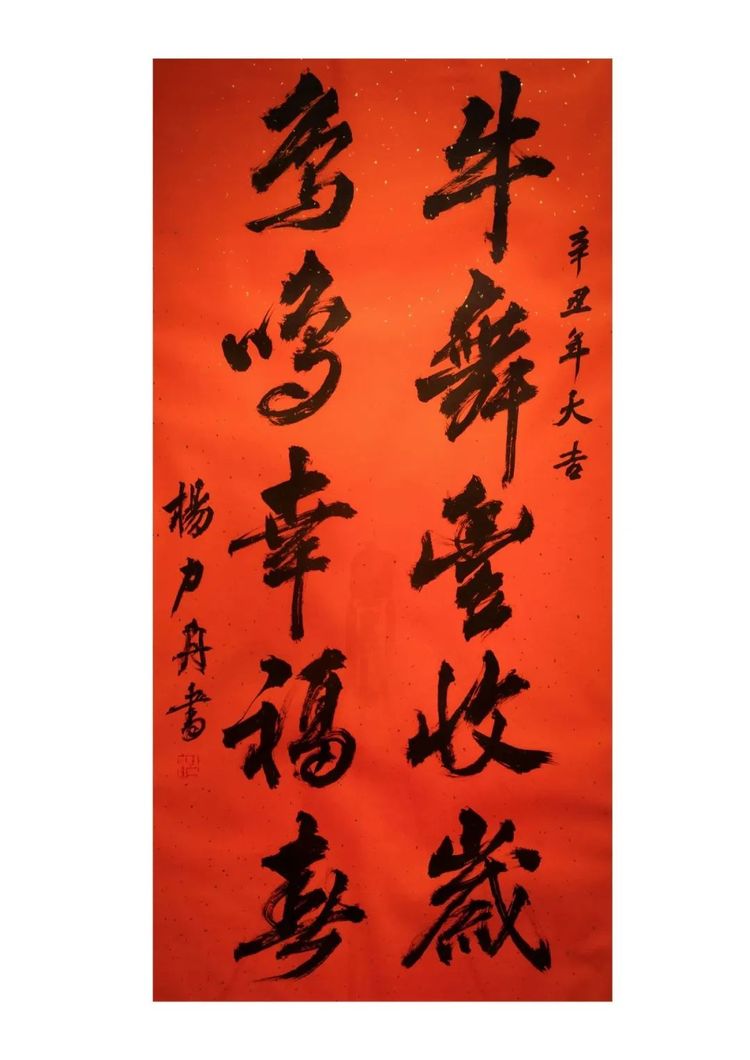 辛丑年大吉
牛舞豐收歲
鳥鳴幸福春
楊力舟書